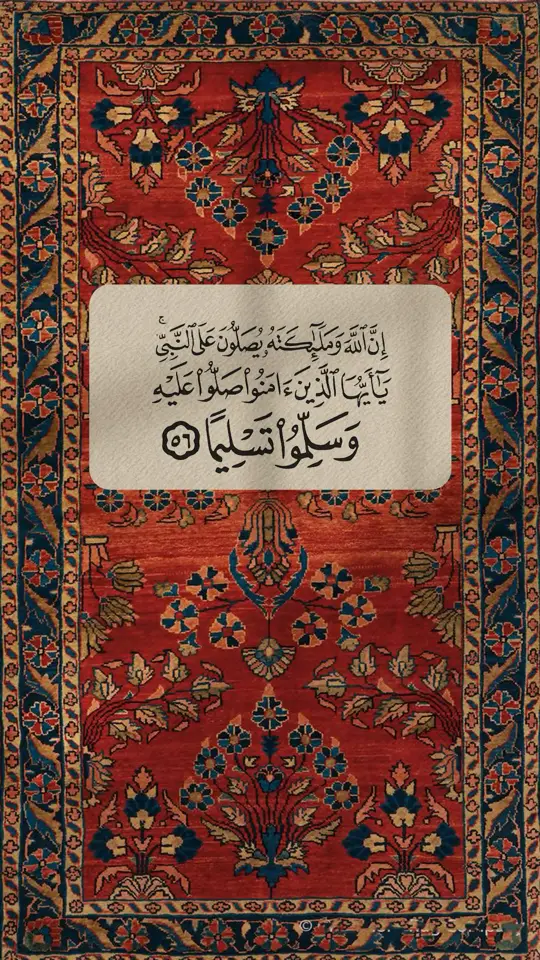 إِنَّ ٱللَّهَ وَمَلَٰٓئِكَتَهُۥ يُصَلُّونَ عَلَى ٱلنَّبِيِّۚ
يَٰٓأَيُّهَا ٱلَّذِينَ ءَامَنُوا۟ صَلُّوا۟ عَلَيْهِ
وَسَلِّمُوا۟ تَسْلِيمًا ٥٦